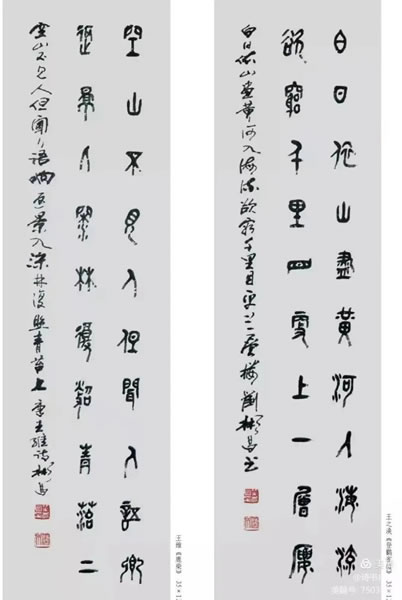 白日依山盡黄河入海流
欲窮千里目更上一層樓
白日依山盡黄河入海流欲窮千里目更上一層樓
王之涣《登鹳雀楼》 35×1
空山不見人但聞人語響
返景入深林復照青苔上
空山不見人但聞人語响返景入深林復照青苔上 王維詩
王维《鹿柴》 35×1
美篇号 7503